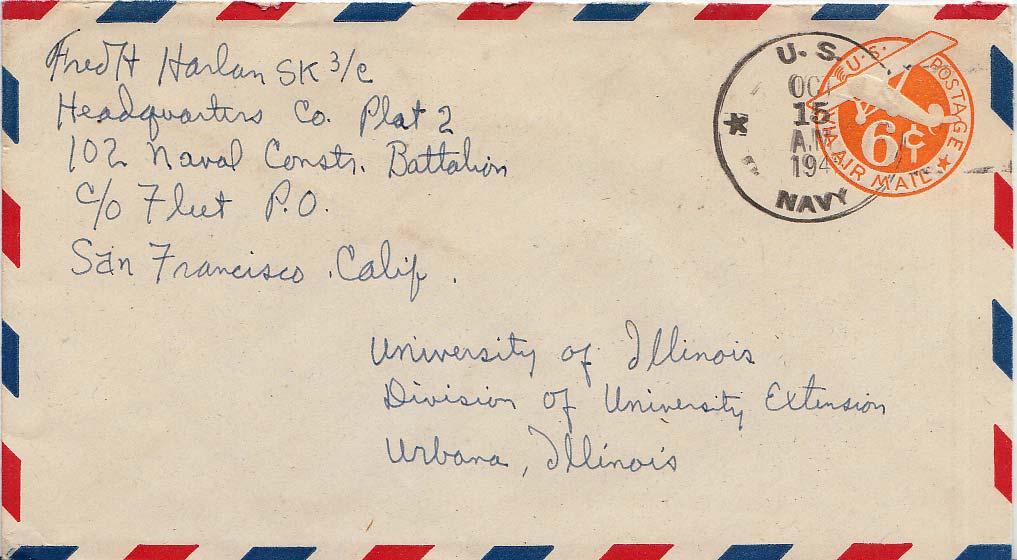 Fred H Harlan SK 3/c
Headquarters Co. Plat 2
102 Naval Constr. Battalion
c/o Fleet P.O.
San Francisco . Calif .
U. S.
OCT
15
A.M
194
NAVY
U.S. POSTAGE
VIA AIR MAIL
6¢
University of Illinois
Division of University Extension
Urbana, Illinois